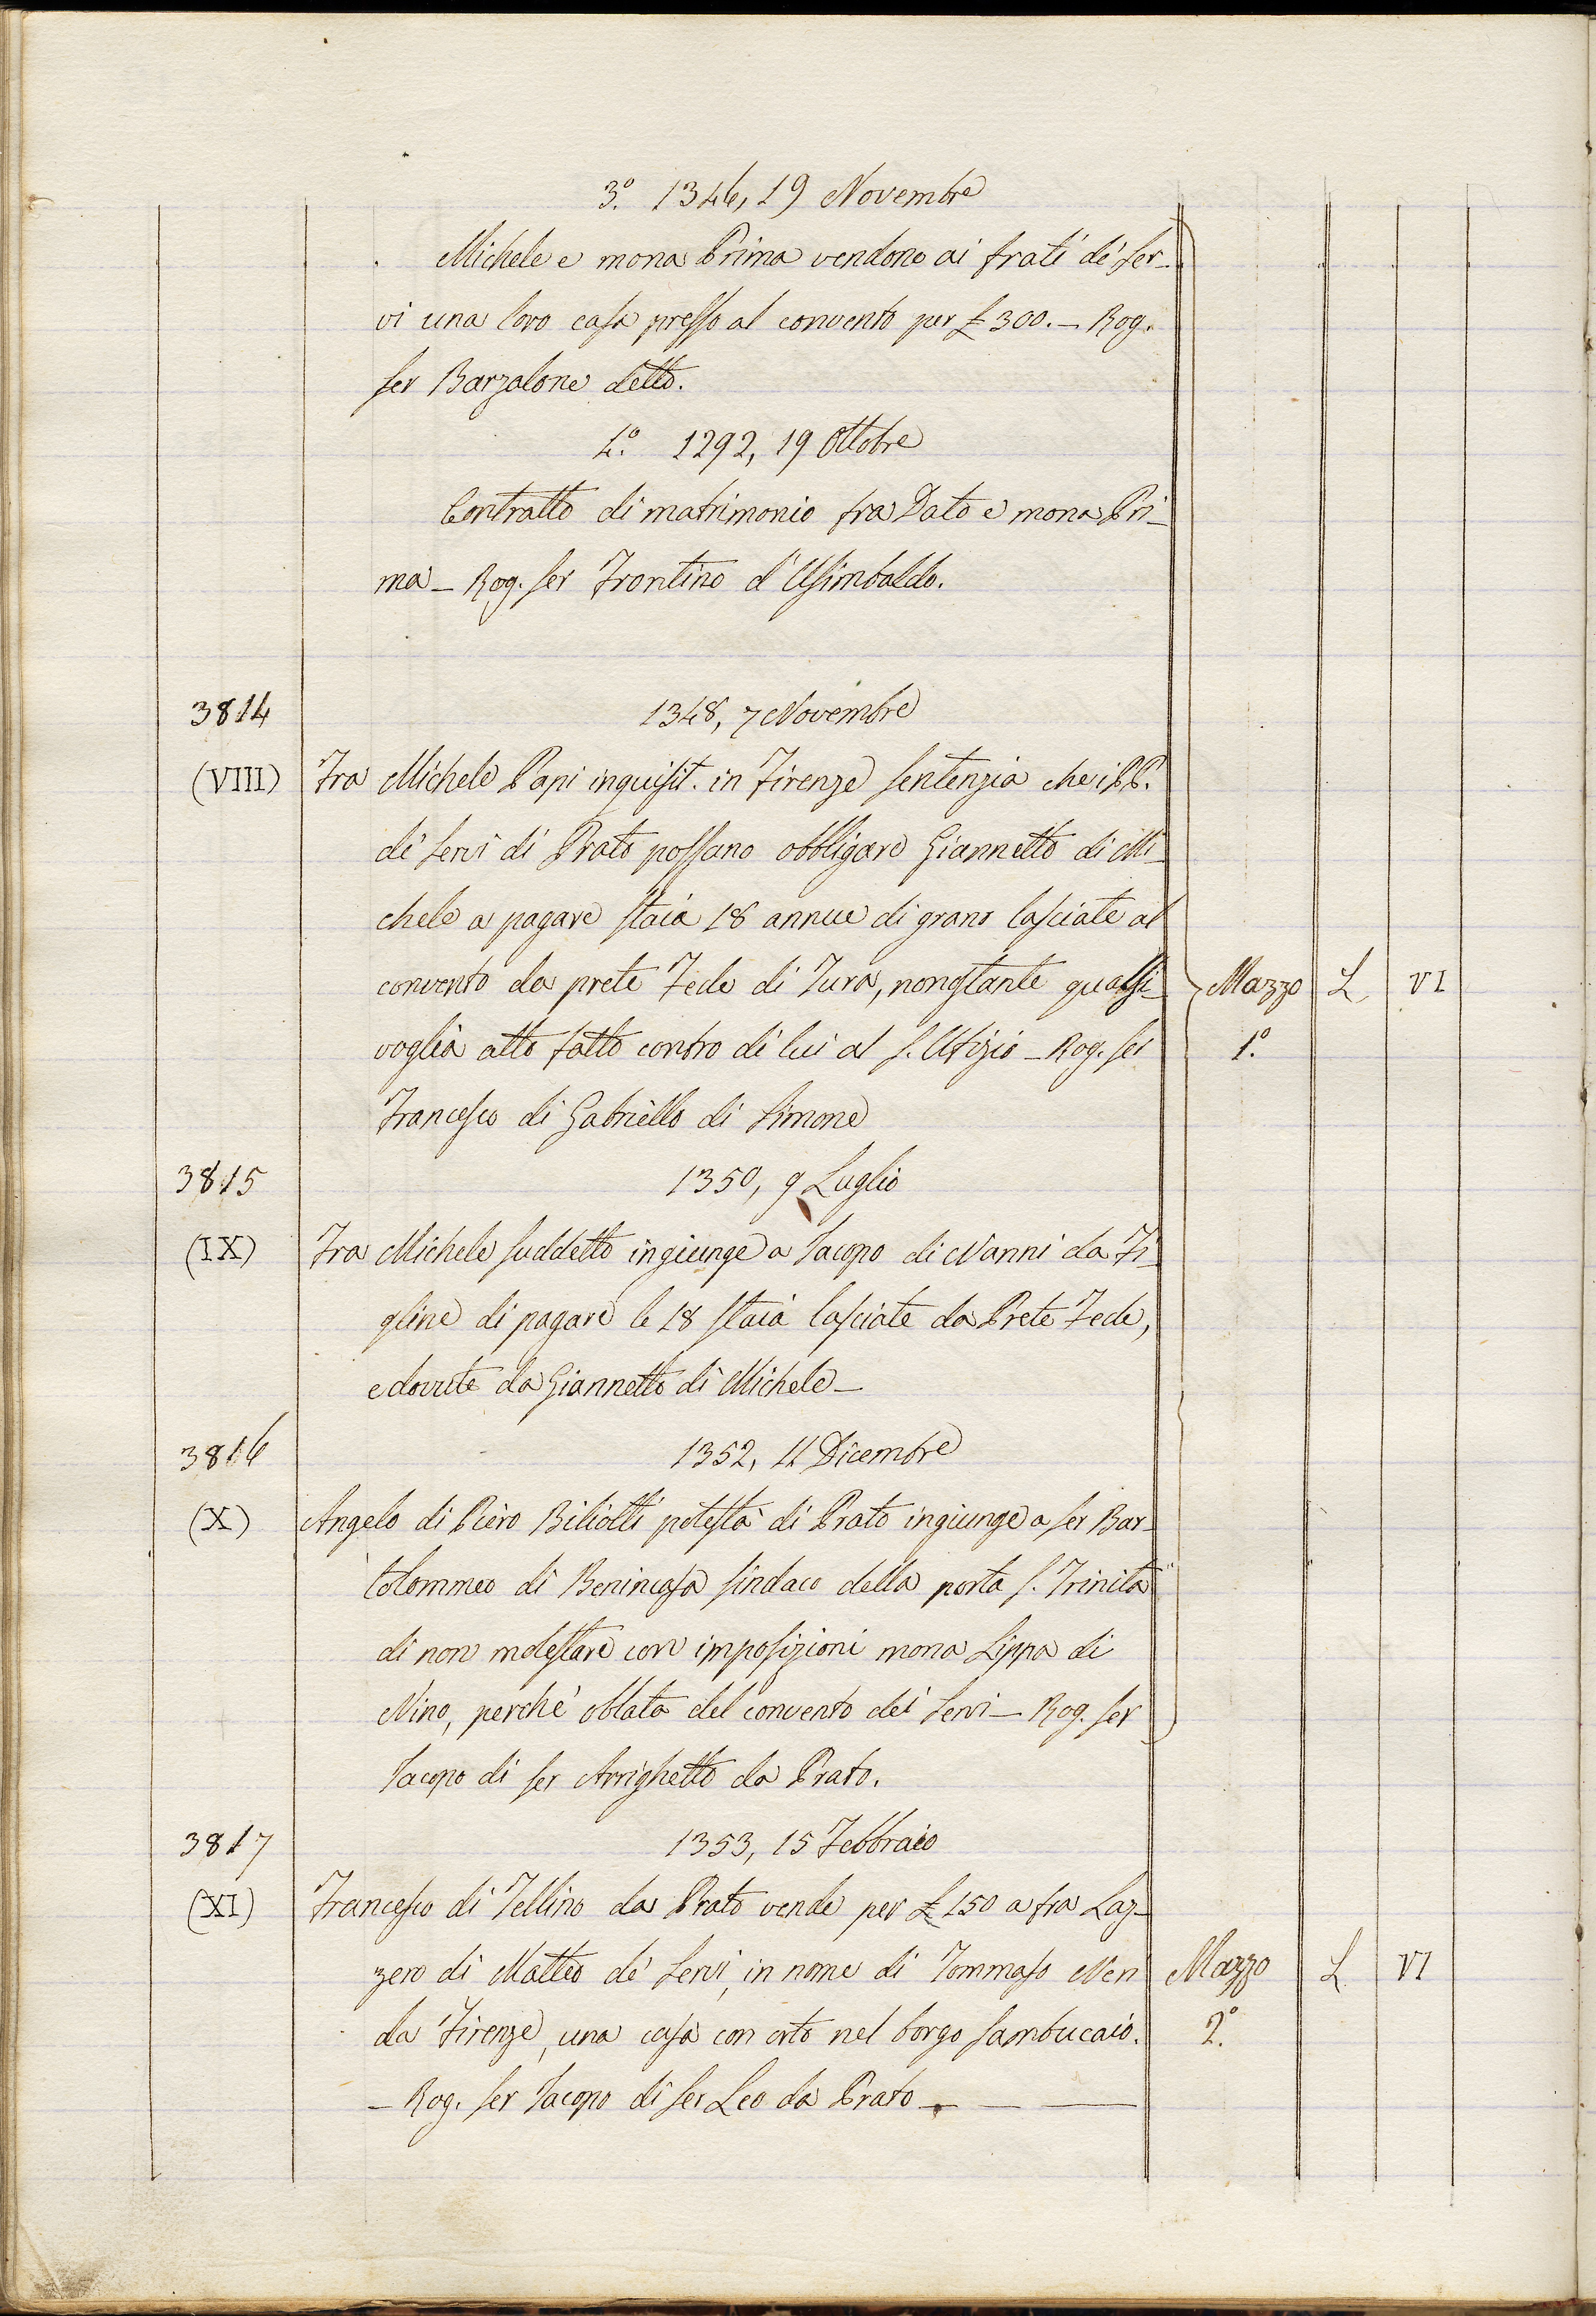 3.º 1346, 19 Novembre
Michele e mona Prima vendono ai frati de' Ser-
vi una loro casa presso al convento per £ 300. — Rog.
ser Barzalone detto.
4.º 1292, 19 Ottobre
Contratto di matrimonio fra Dato e mona Pri-
ma — Rog. ser Frontino d'Usimbaldo.
3814 1348, 7 Novembre
(VIII) Fra Michele Papi inquisit. in Firenze sentenzia che i PP.
de' Servi di Prato possano obbligare Giannetto di Mi-
chele a pagare staia 18 annue di grano lasciate al
convento da prete Fede di Jura, nonostante qualsi- Mazzo L VI
voglia atto fatto contro di lui al S. Ufizio — Rog. ser 1.º
Francesco di Gabriello di Simone
3815 1350, 9 Luglio
(IX) Fra Michele suddetto ingiunge a Iacopo di Nanni da Fi-
gline di pagare le 18 staia lasciate da Prete Fede,
e dovute da Giannetto di Michele —
3816 1352, 11 Dicembre
(X) Angelo di Piero Biliotti potestà di Prato ingiunge a ser Bar-
tolommeo di Benincasa sindaco della porta S. Trinita
di non molestare con imposizioni mona Lippa di
Nino, perchè oblata del convento dei Servi — Rog. ser
Iacopo di ser Arrighetto da Prato.
3817 1353, 15 Febbraio
(XI) Francesco di Tellino da Prato vende per £ 150 a fra Laz-
zero di Matteo de' Servi, in nome di Tommaso Neri Mazzo L VI
da Firenze, una casa con orto nel borgo Sambucaio. 2.º
— Rog. ser Iacopo di ser Leo da Prato — — —